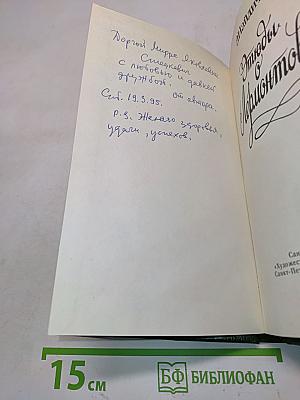 Дорогой Мирре Яковлевне
с любовью и давней
дружбой. от автора.
Спб. 19.3.95.
P.S. Желаю здоровья,
удачи, успехов.
Этюды
о
Лермонтов
Сан
«Художест
Санкт-Пет
15 см
БФ БИБЛИОФАН